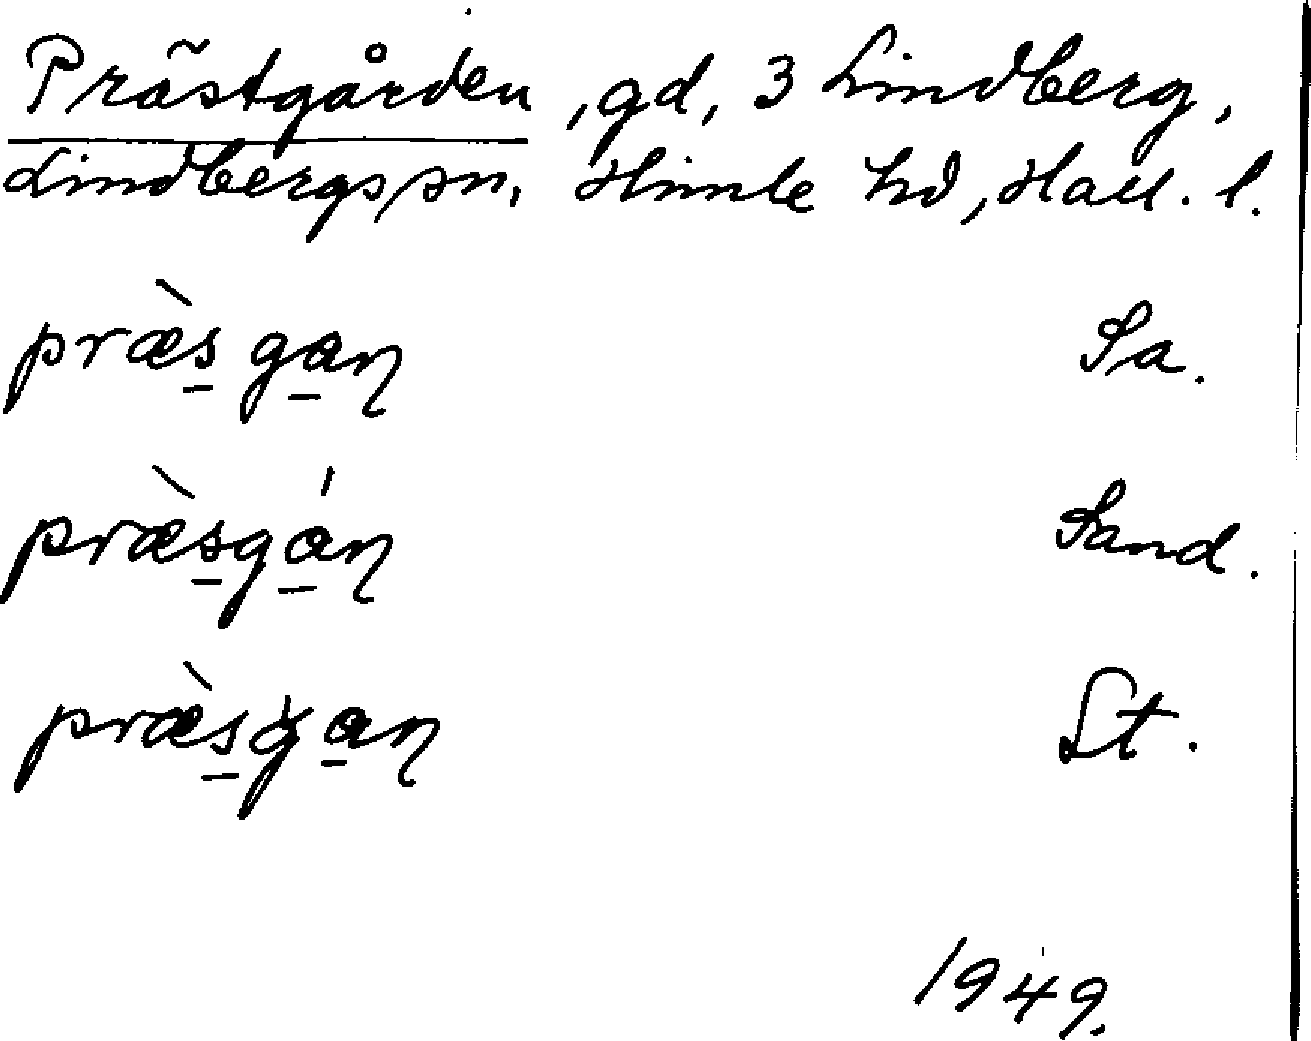 Prästgården, gd, 3 Lindberg,
Lindbergs sn, Himle hd, Hall. l.
præ̀s̱ ga̱ɳ Sa.
præ̀s̱gá̱ɳ Sand.
præ̀s̱ga̱ɳ St.
1949.